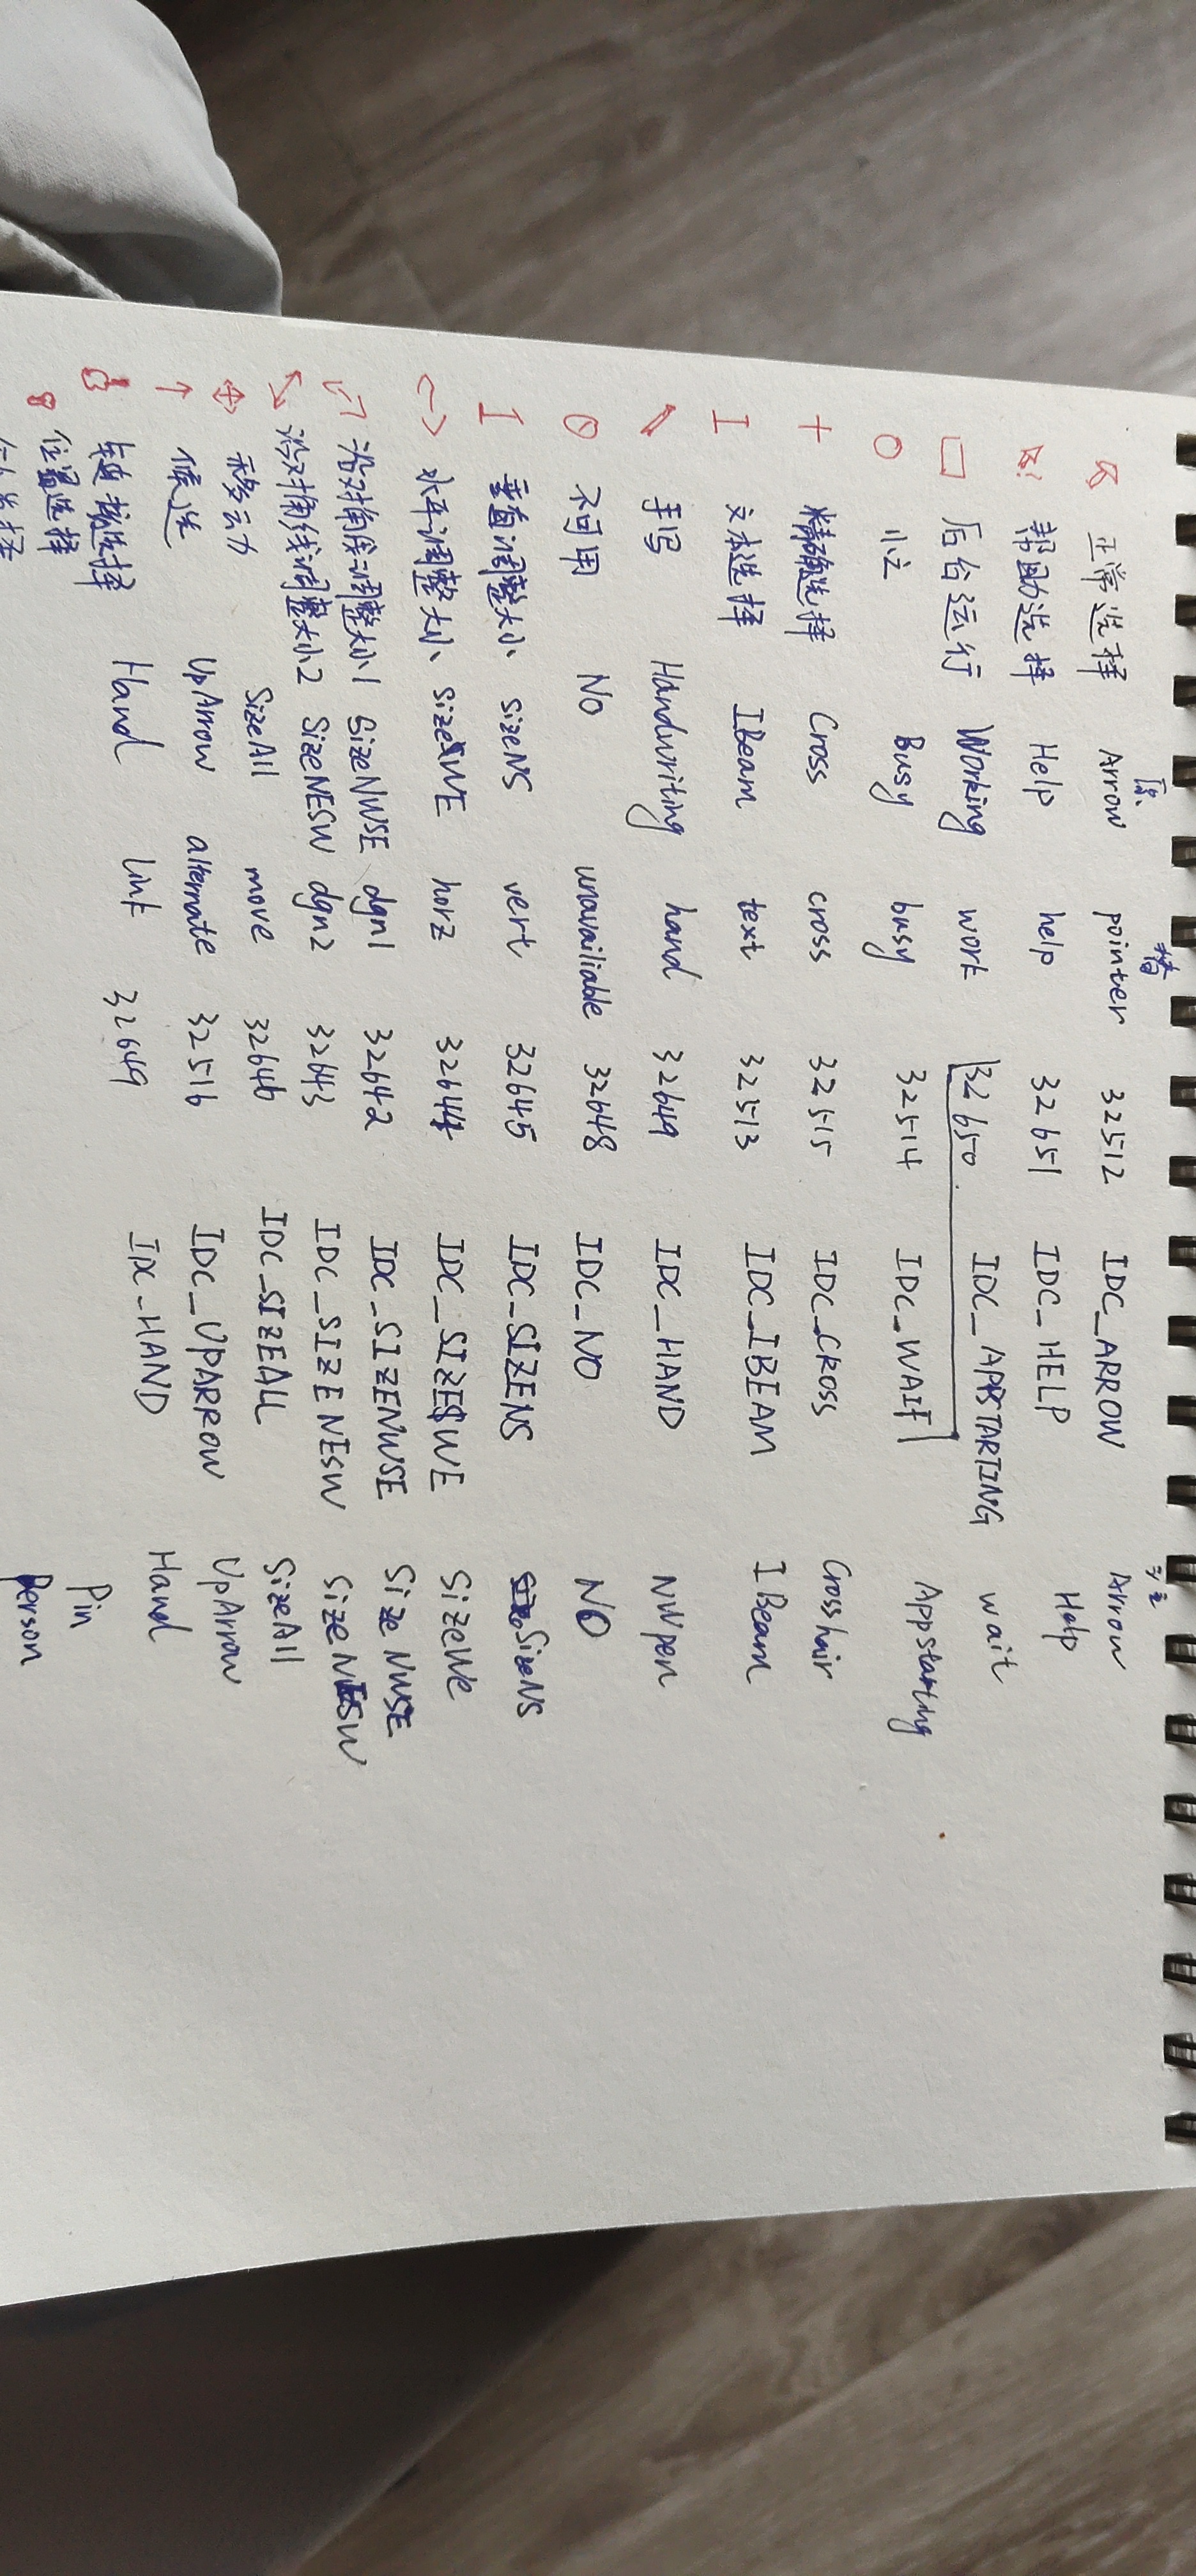 原 替 注
正常选择 Arrow pointer 32512 IDC_ARROW Arrow
帮助选择 Help help 32651 IDC_HELP Help
后台运行 Working work 32650 IDC_APPSTARTING wait
忙 Busy busy 32514 IDC_WAIT Appstarting
精确选择 Cross cross 32515 IDC_CROSS Crosshair
文本选择 IBeam text 32513 IDC_IBEAM IBeam
手写 Handwriting hand 32649 IDC_HAND NWpen
不可用 No unavailiable 32648 IDC_NO NO
垂直调整大小 SizeNS vert 32645 IDC_SIZENS SizeNS
水平调整大小 SizeWE horz 32644 IDC_SIZEWE SizeWE
沿对角线调整大小1 SizeNWSE dgn1 32642 IDC_SIZENWSE SizeNWSE
沿对角线调整大小2 SizeNESW dgn2 32643 IDC_SIZENESW SizeNESW
移动 SizeAll move 32646 IDC_SIZEALL SizeAll
候选 UpArrow alternate 32516 IDC_UPARROW UpArrow
链接选择 Hand link 32649 IDC_HAND Hand
位置选择 Pin
Person